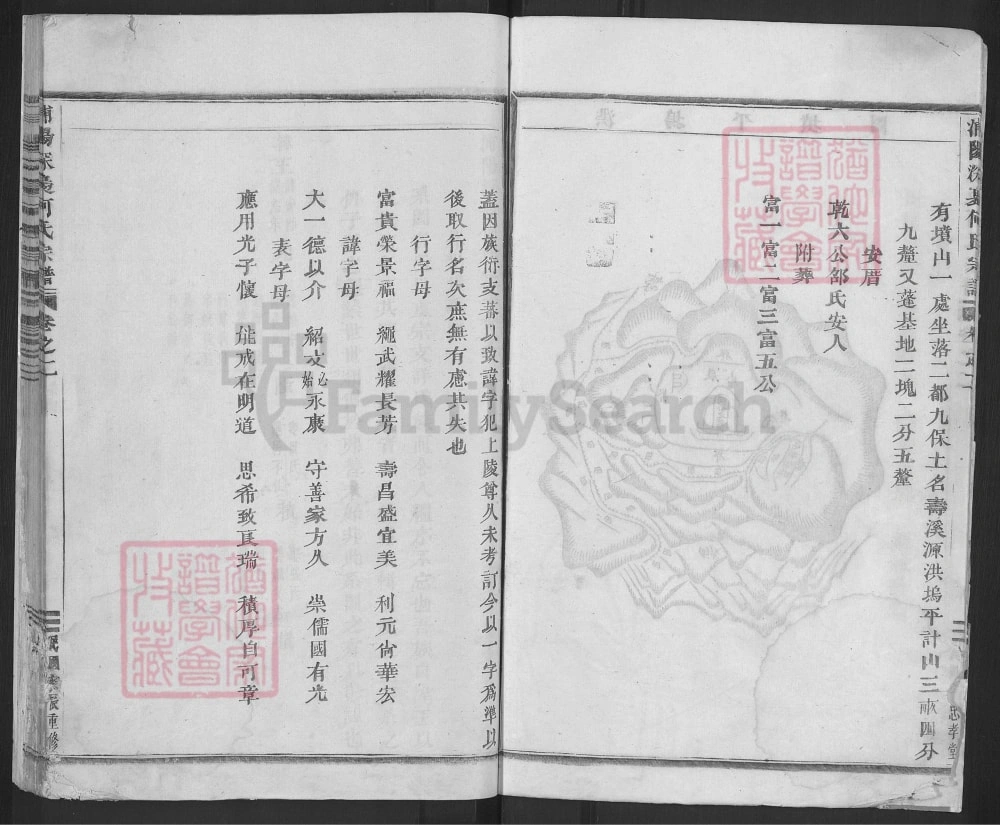 有墳山一處坐落二都九保土名壽溪源洪塢平計山三畝四分
九釐又蓬基地二塊二分五釐
安厝
乾六公邵氏安人
附葬
富一富二富三富五公
忠孝堂
蓋因族衍支蕃以致諱字犯上陵尊久未考訂今以一字爲準以
後取行名次庶無有慮其失也
行字母
富貴榮景福 繩武耀長芳 壽昌盛宜美 利元尙華宏
諱字母
大一德以介 紹文必始永康 守善家方久 崇儒國有光
表字母
應用光子懷 能戒在明道 思希致良瑞 積厚自可章
何氏宗譜 卷之一
民國 重修
FamilySearch
譜學會
收藏
譜學會
收藏